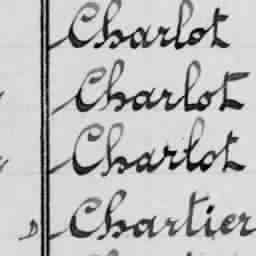 Charlot
Charlot
Charlot
Chartier